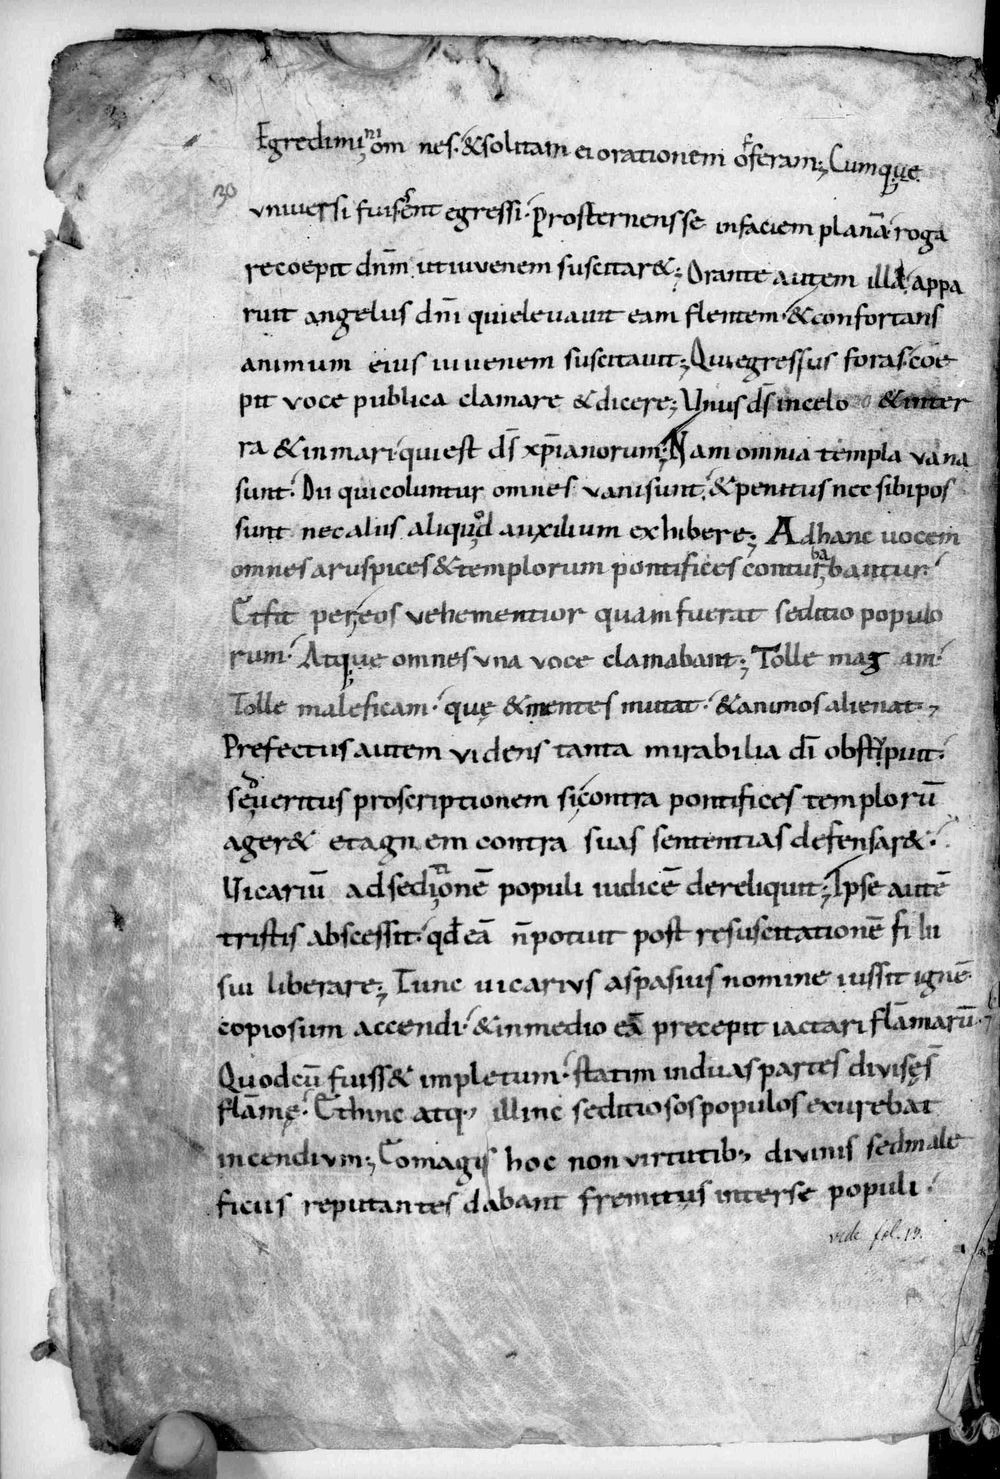 Egredimi;ni om nes·&solitam ei orationem offeram; Cumque
30
universi fuissent egressi· prosternens se infaciem planā· roga
recoepit dnm̄ utiuvenem suscitar&; Orante autem illa· appa
ruit angelus dnī quielevavit eam flentem·&confortans
animum eius iuvenem suscitavit; Quiegressus foras·coe
pit voce publica clamare &dicere; Unus ds̄ incelo &inter
ra &inmari·quiest ds̄ xp̄ianorum; Nam omnia templa vana
sunt· Dii quicoluntur omnes vanisunt·&penitus nec sibi pos
sunt necaliis aliquod auxilium exhibere; Adhanc uocem
omnes aruspices&templorum pontifices conturbabantur·
Etfit pereos vehementior quamfuerat seditio populo
rum· Atque omnes una voce clamabant; Tolle mag am·
Tolle maleficam· quę &mentes mutat·&animos alienat;
Prefectus autem videns tanta mirabilia dī obstipuit·
sed veritus proscriptionem si contra pontifices templorū
ager& et agn em contra suas sententias defensar&·
Uicariū adseditionē populi iudicē dereliquit; Ipse autē
tristis abscessit· qđ eā n̄ potuit post resuscitationē filii
sui liberare; Tunc uicarius aspasius nomine iussit ignē
copiosum accendi·&inmedio eā precepit iactari flāmarū·
Quodcū fuiss& impletum· statim induas partes divisęs̄
flāmę· Ethinc atq; illinc seditiosos populos exurebat
incendium; Tomagis hoc non virtutib; divinis sedmale
ficiis reputantes dabant fremitus interse populi·
vide fol. 13.